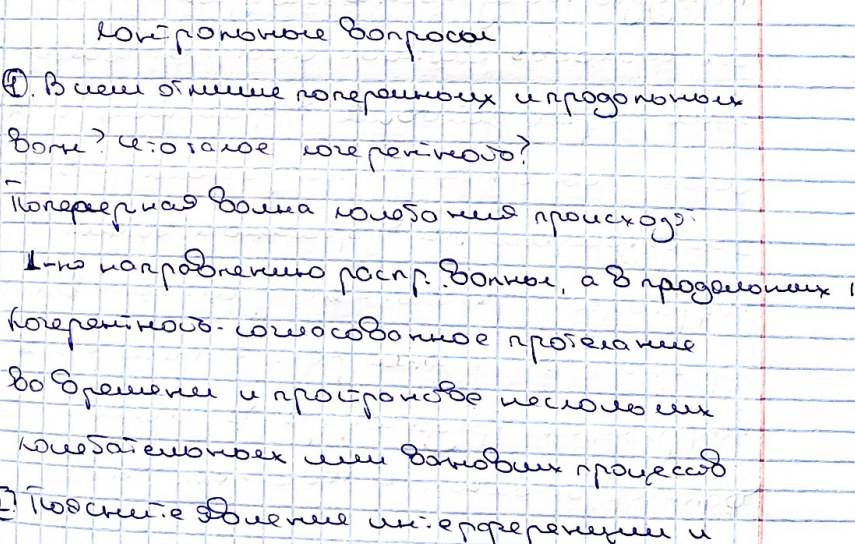 контрольные вопросы
①. В чем отличие поперечных и продольных
волн? Что такое когерентность?
Поперечная волна колебания происходят
⊥-но направлению распр. волны, а в продольных
Когерентность - согласованное протекание
во времени и пространстве нескольких
колебательных или волновых процессов
Поясните явления интерференции и